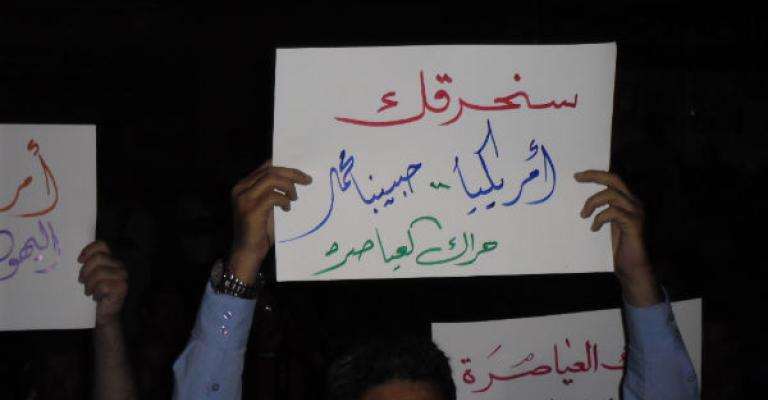 سنحرقك
أمريكيا .. حبيبنا محمد
حراك العياصره
ك العياصرة
أمر
اليهو